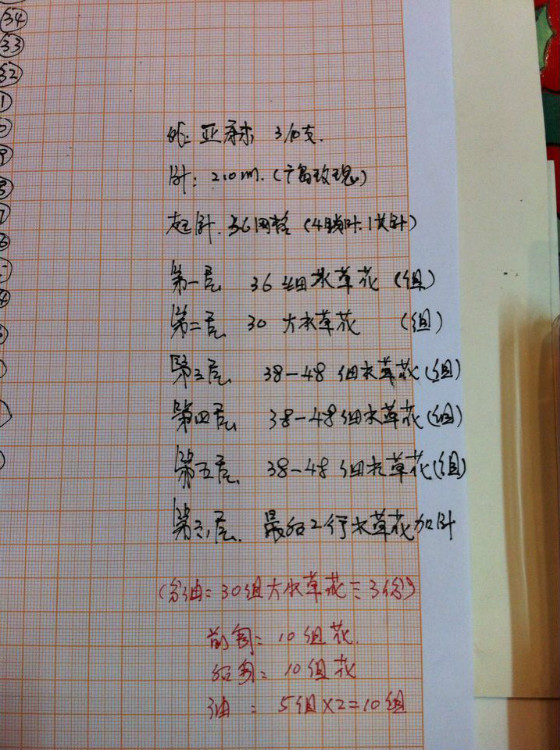 34
33
32
线: 亚麻 3/6支.
针: 2.0m.(广岛玫瑰)
起针. 36网格 (4锁针.1长针)
第一层 36 细水草花 (组)
第二层 30 大水草花 (组)
第三层 38-48 细水草花(组)
第四层 38-48细水草花(组)
第五层 38-48 细水草花(组)
第六层. 最后2行水草花加针
(分袖=30组大水草花÷3份)
前胸=10组花.
后身=10组花
袖: 5组×2=10组